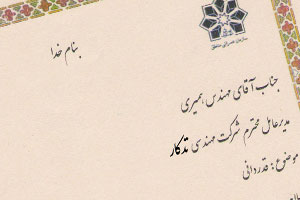 بنام خدا
سازمان عمرانی مناطق
جناب آقای مهندس بصیری
مدیرعامل محترم شرکت مهندسی تدکار
موضوع: قدردانی